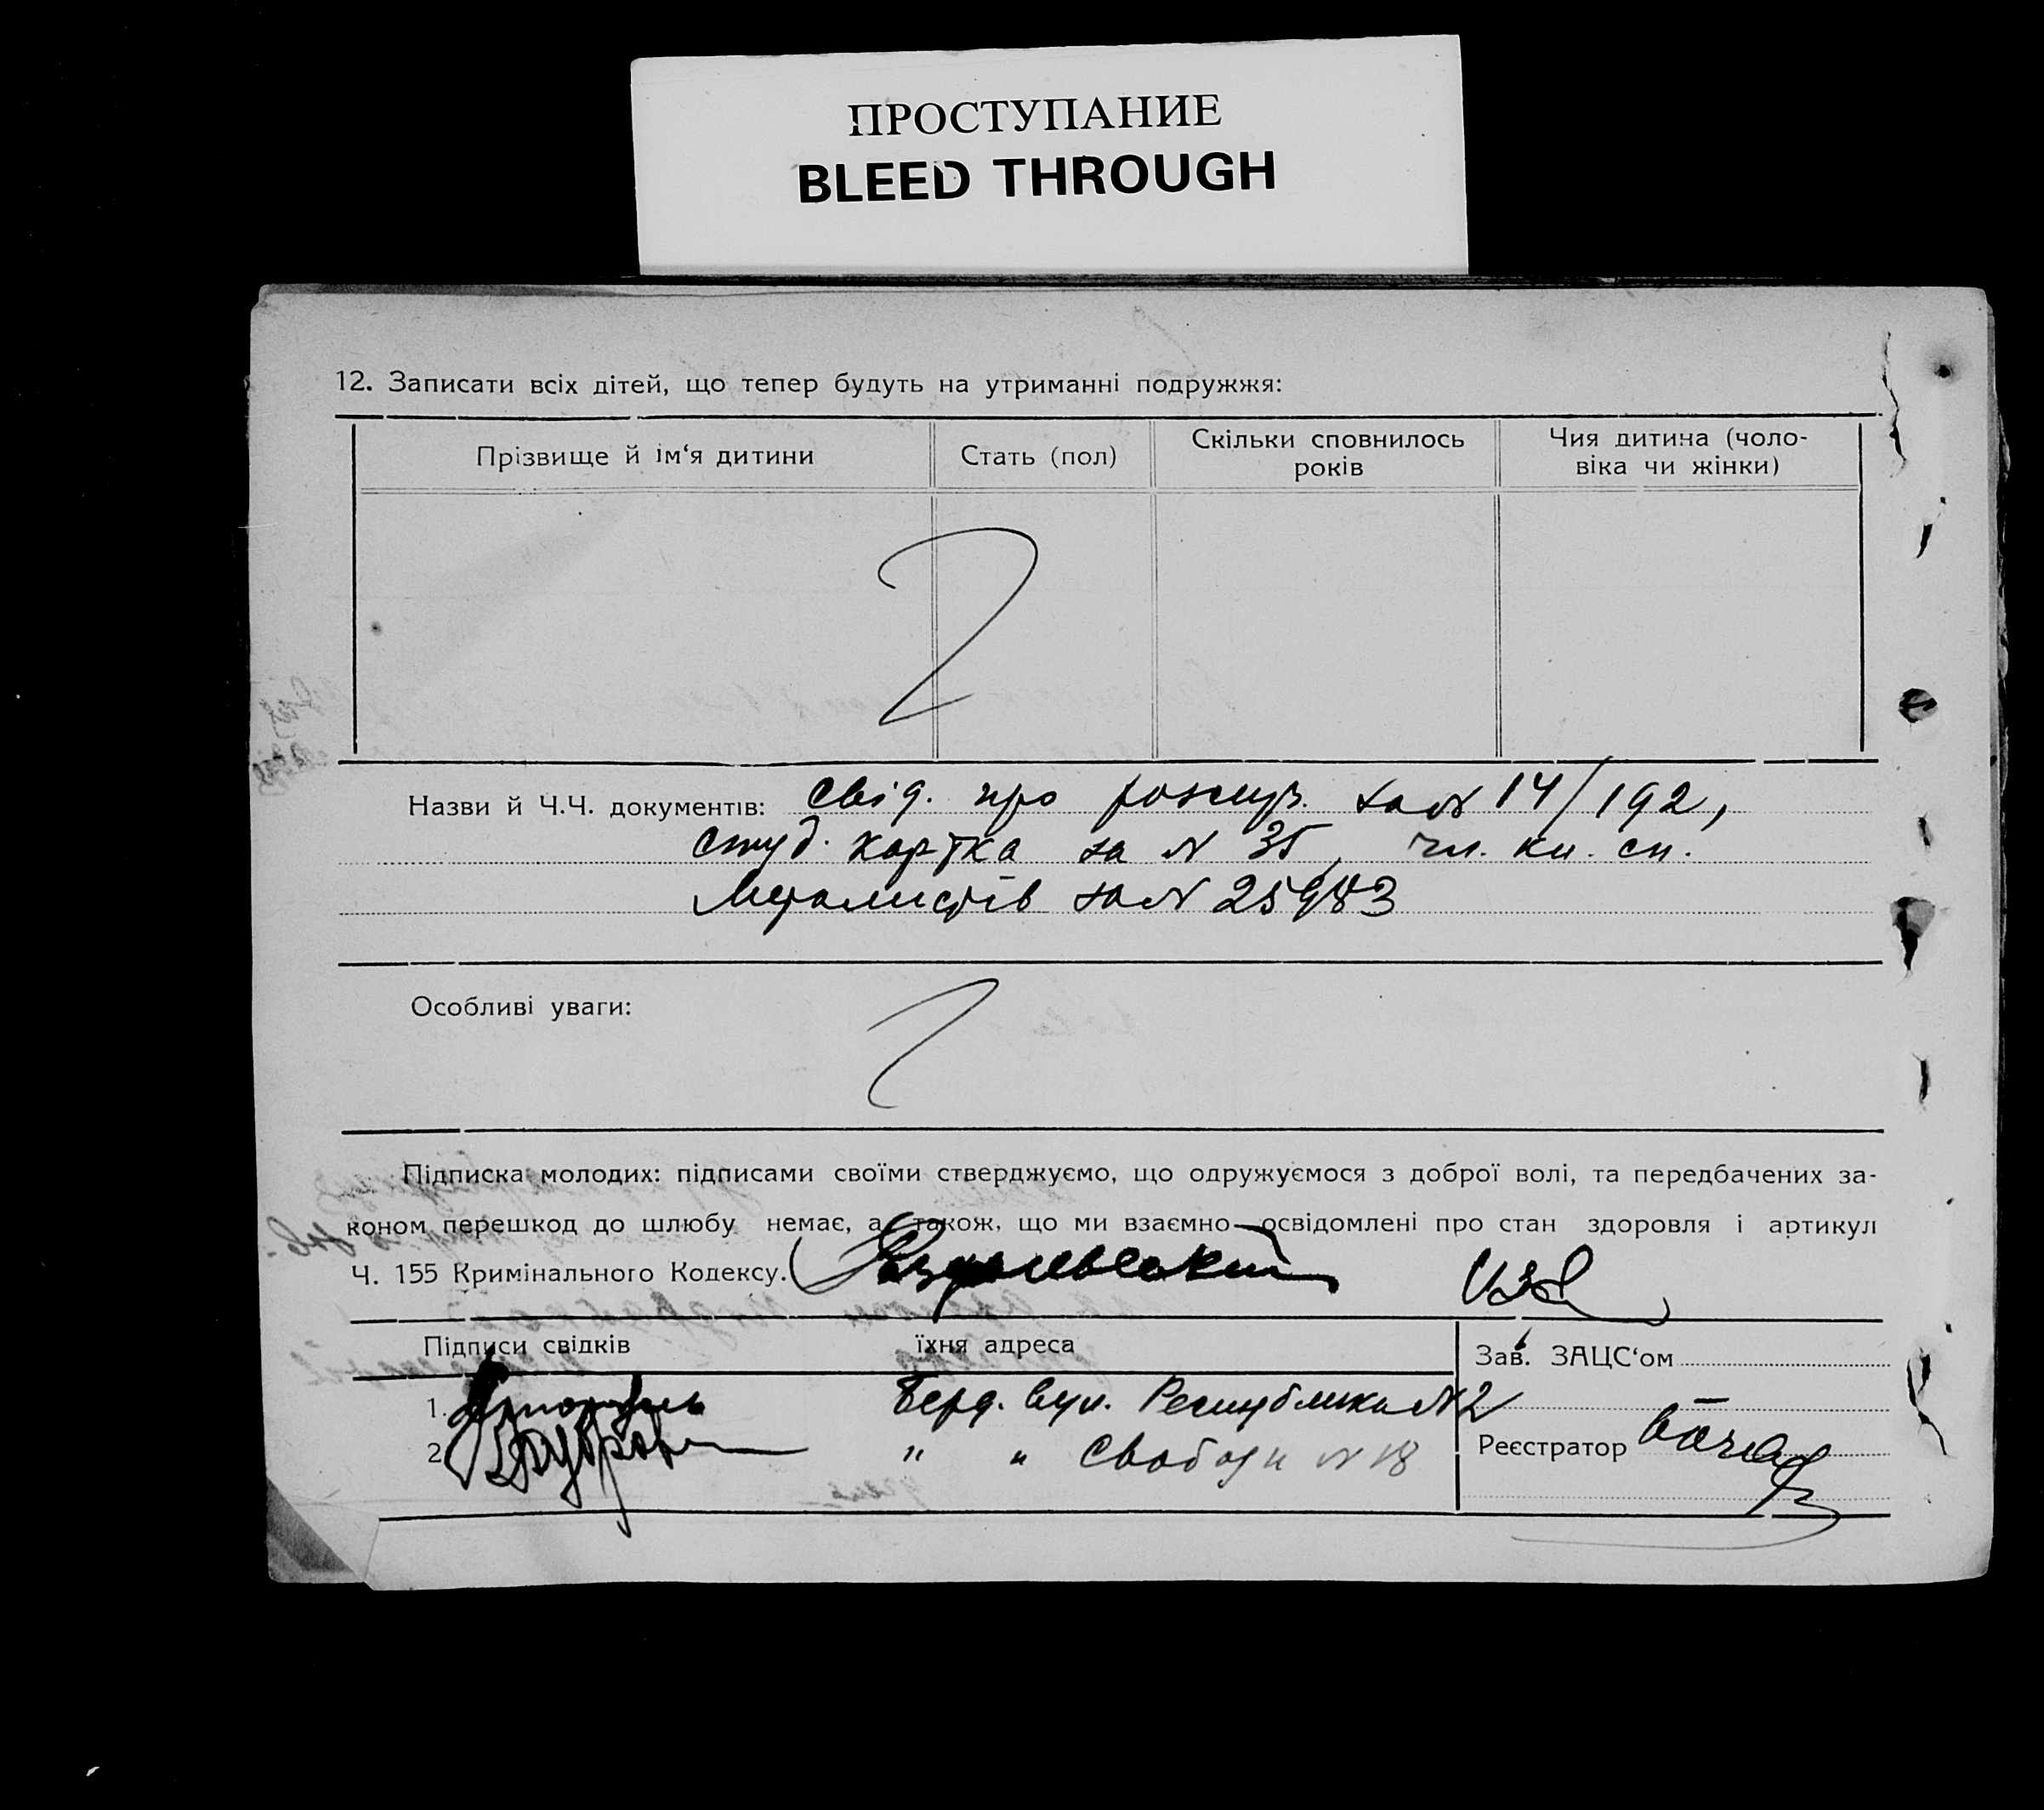 ПРОСТУПАНИЕ
BLEED THROUGH
12. Записати всіх дітей, що тепер будуть на утриманні подружжя:
Прізвище й ім‘я дитини Стать (пол) Скільки сповнилось років Чия дитина (чоло-віка чи жінки)
Назви й Ч.Ч. документів: свід. про за N 14/192,
студ. картка за N 35, чл. кн. сп.
Металистів за N 25983
Особливі уваги:
Підписка молодих: підписами своїми стверджуємо, що одружуємося з доброї волі, та передбачених за-
коном перешкод до шлюбу немає, а також, що ми взаємно освідомлені про стан здоровля і артикул
Ч. 155 Кримінального Кодексу.
Підписи свідків їхня адреса Зав. ЗАЦС‘ом
1. Берд. вул. Республики N 2
2 " " Свободи N 18 Реєстратор